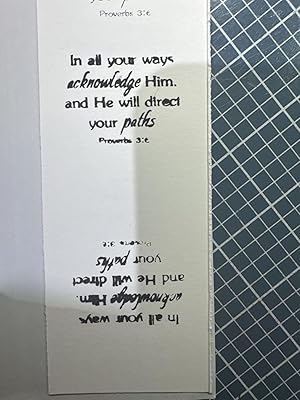 your paths
Proverbs 3:6
In all your ways
acknowledge Him.
and He will direct
your paths
Proverbs 3:6
Proverbs 3:6
your paths
and He will direct
acknowledge Him.
In all your ways